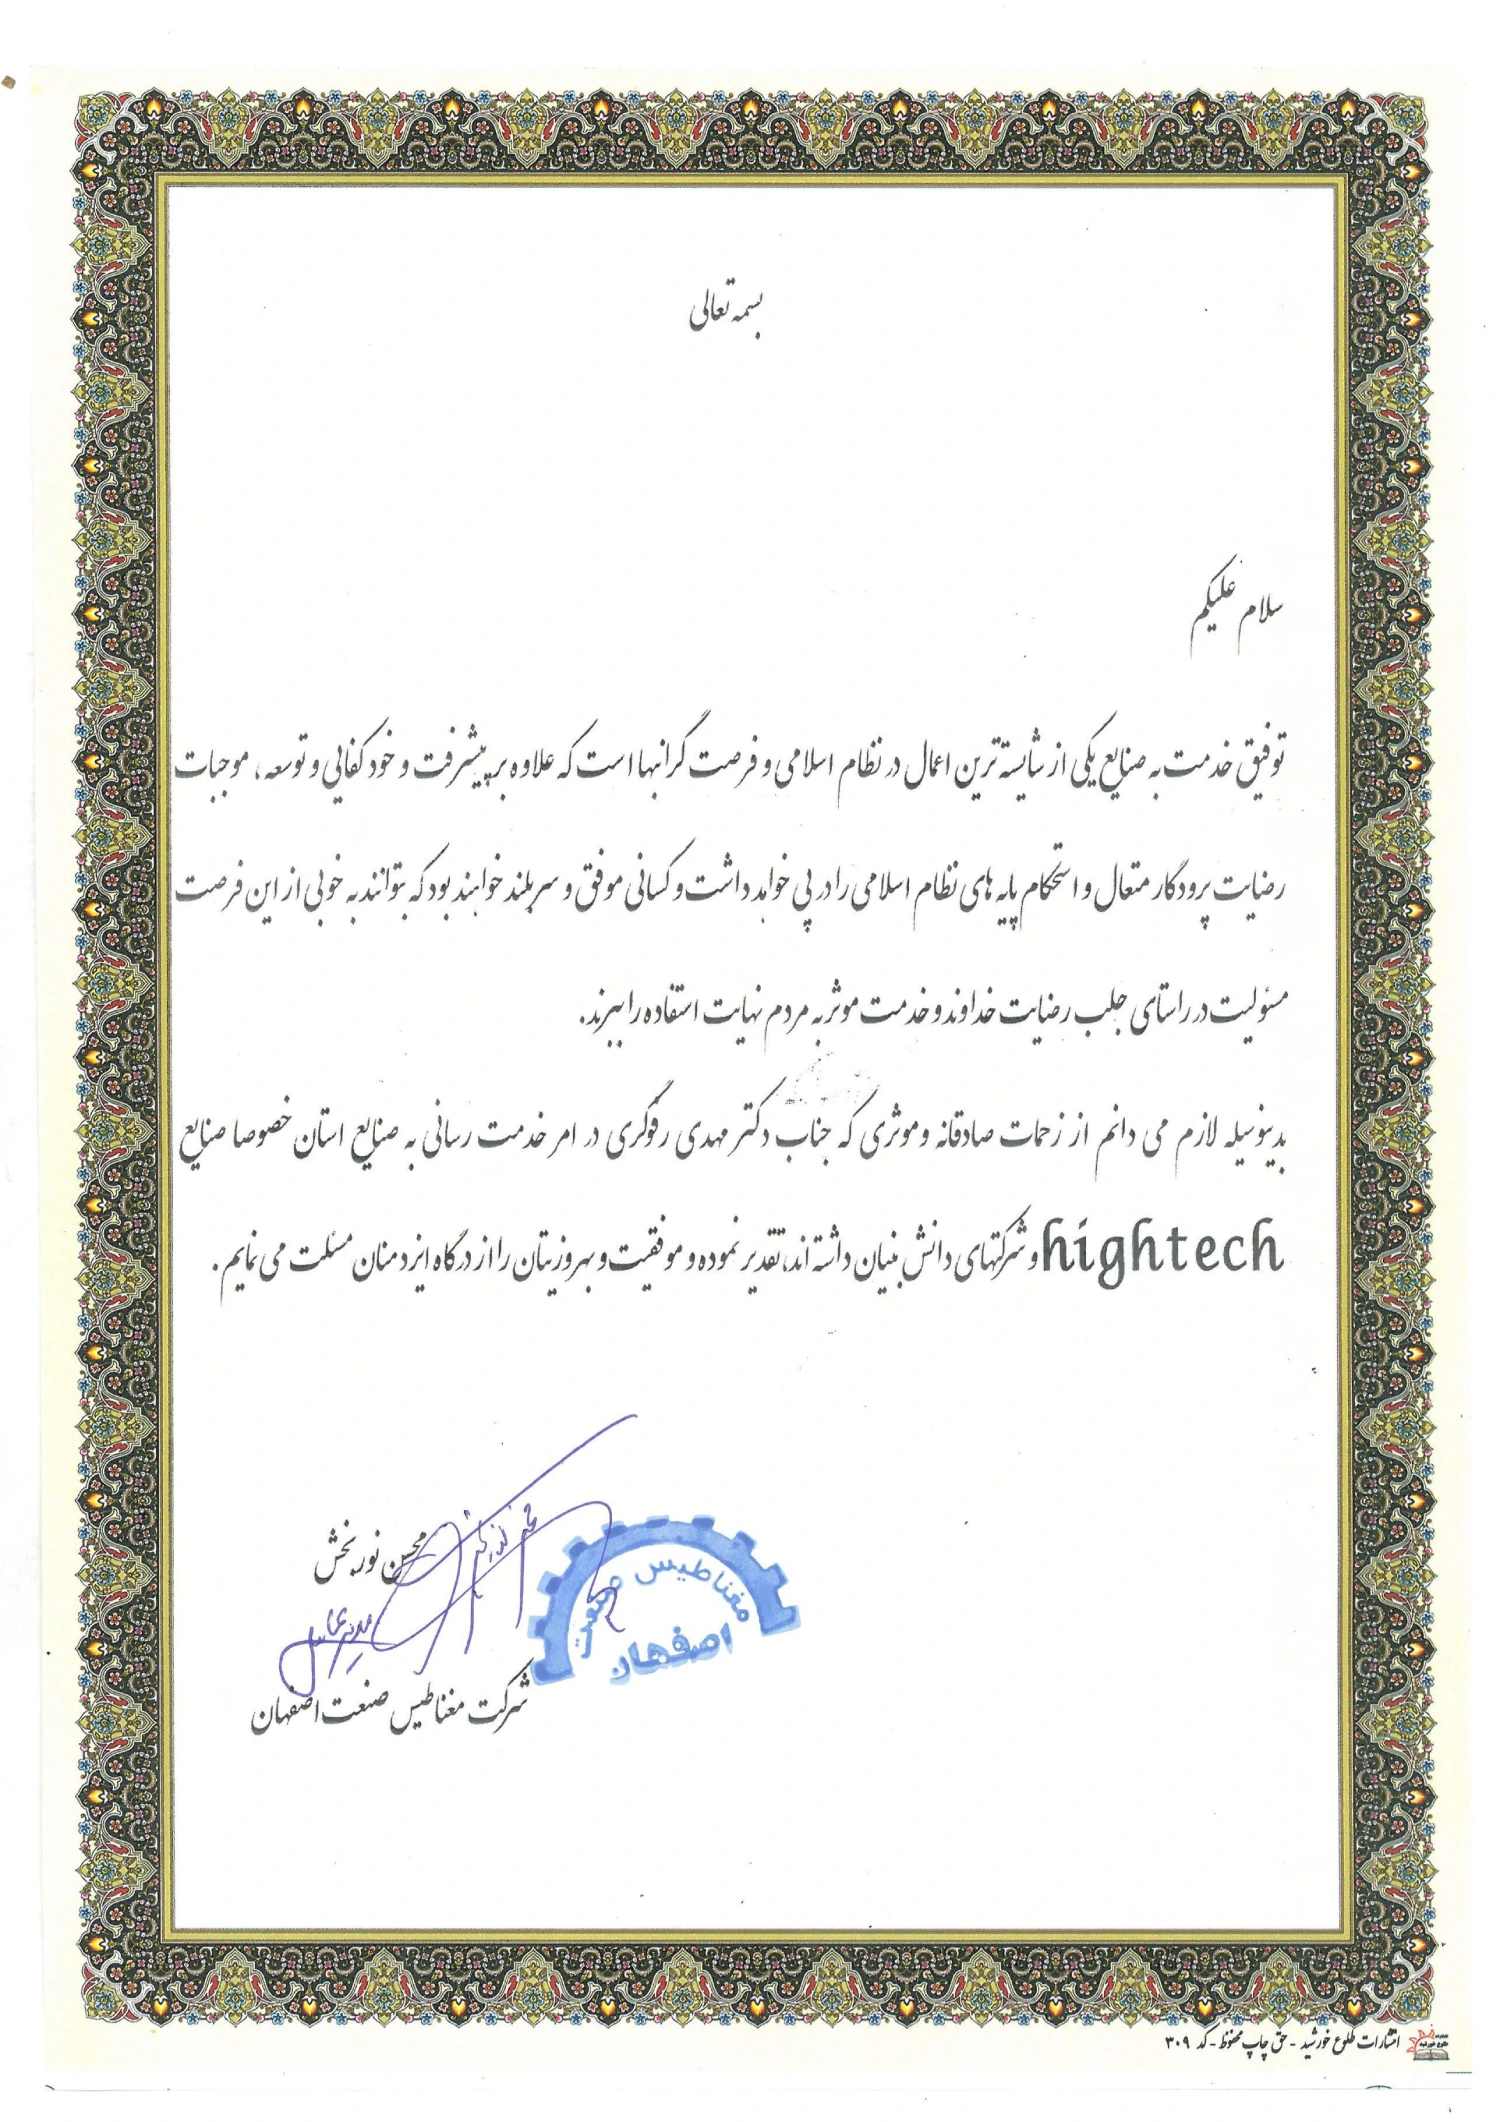 بسمه تعالی
سلام علیکم
توفیق خدمت به صنایع یکی از شایسته ترین اعمال در نظام اسلامی و فرصت گرانبها است که علاوه بر پیشرفت و خود کفائی و توسعه ، موجبات
رضایت پرودگار متعال و استحکام پایه های نظام اسلامی را در پی خواهد داشت و کسانی موفق و سربلند خواهند بود که بتوانند به خوبی از این فرصت
مسئولیت در راستای جلب رضایت خداوند و خدمت موثر به مردم نهایت استفاده را ببرند.
بدینوسیله لازم می دانم از زحمات صادقانه وموثری که جناب دکتر مهدی رفوگری در امر خدمت رسانی به صنایع استان خصوصا صنایع
hightech و شرکتهای دانش بنیان داشته اند، تقدیر نموده و موفقیت و بهروزیتان را از درگاه ایزد منان مسئلت می نمایم .
محسن نوربخش
محسن نوربخش
مدیرعامل
مغناطیس صنعت
اصفهان
شرکت مغناطیس صنعت اصفهان
انتشارات طلوع خورشید - حق چاپ محفوظ - کد ۳۰۹